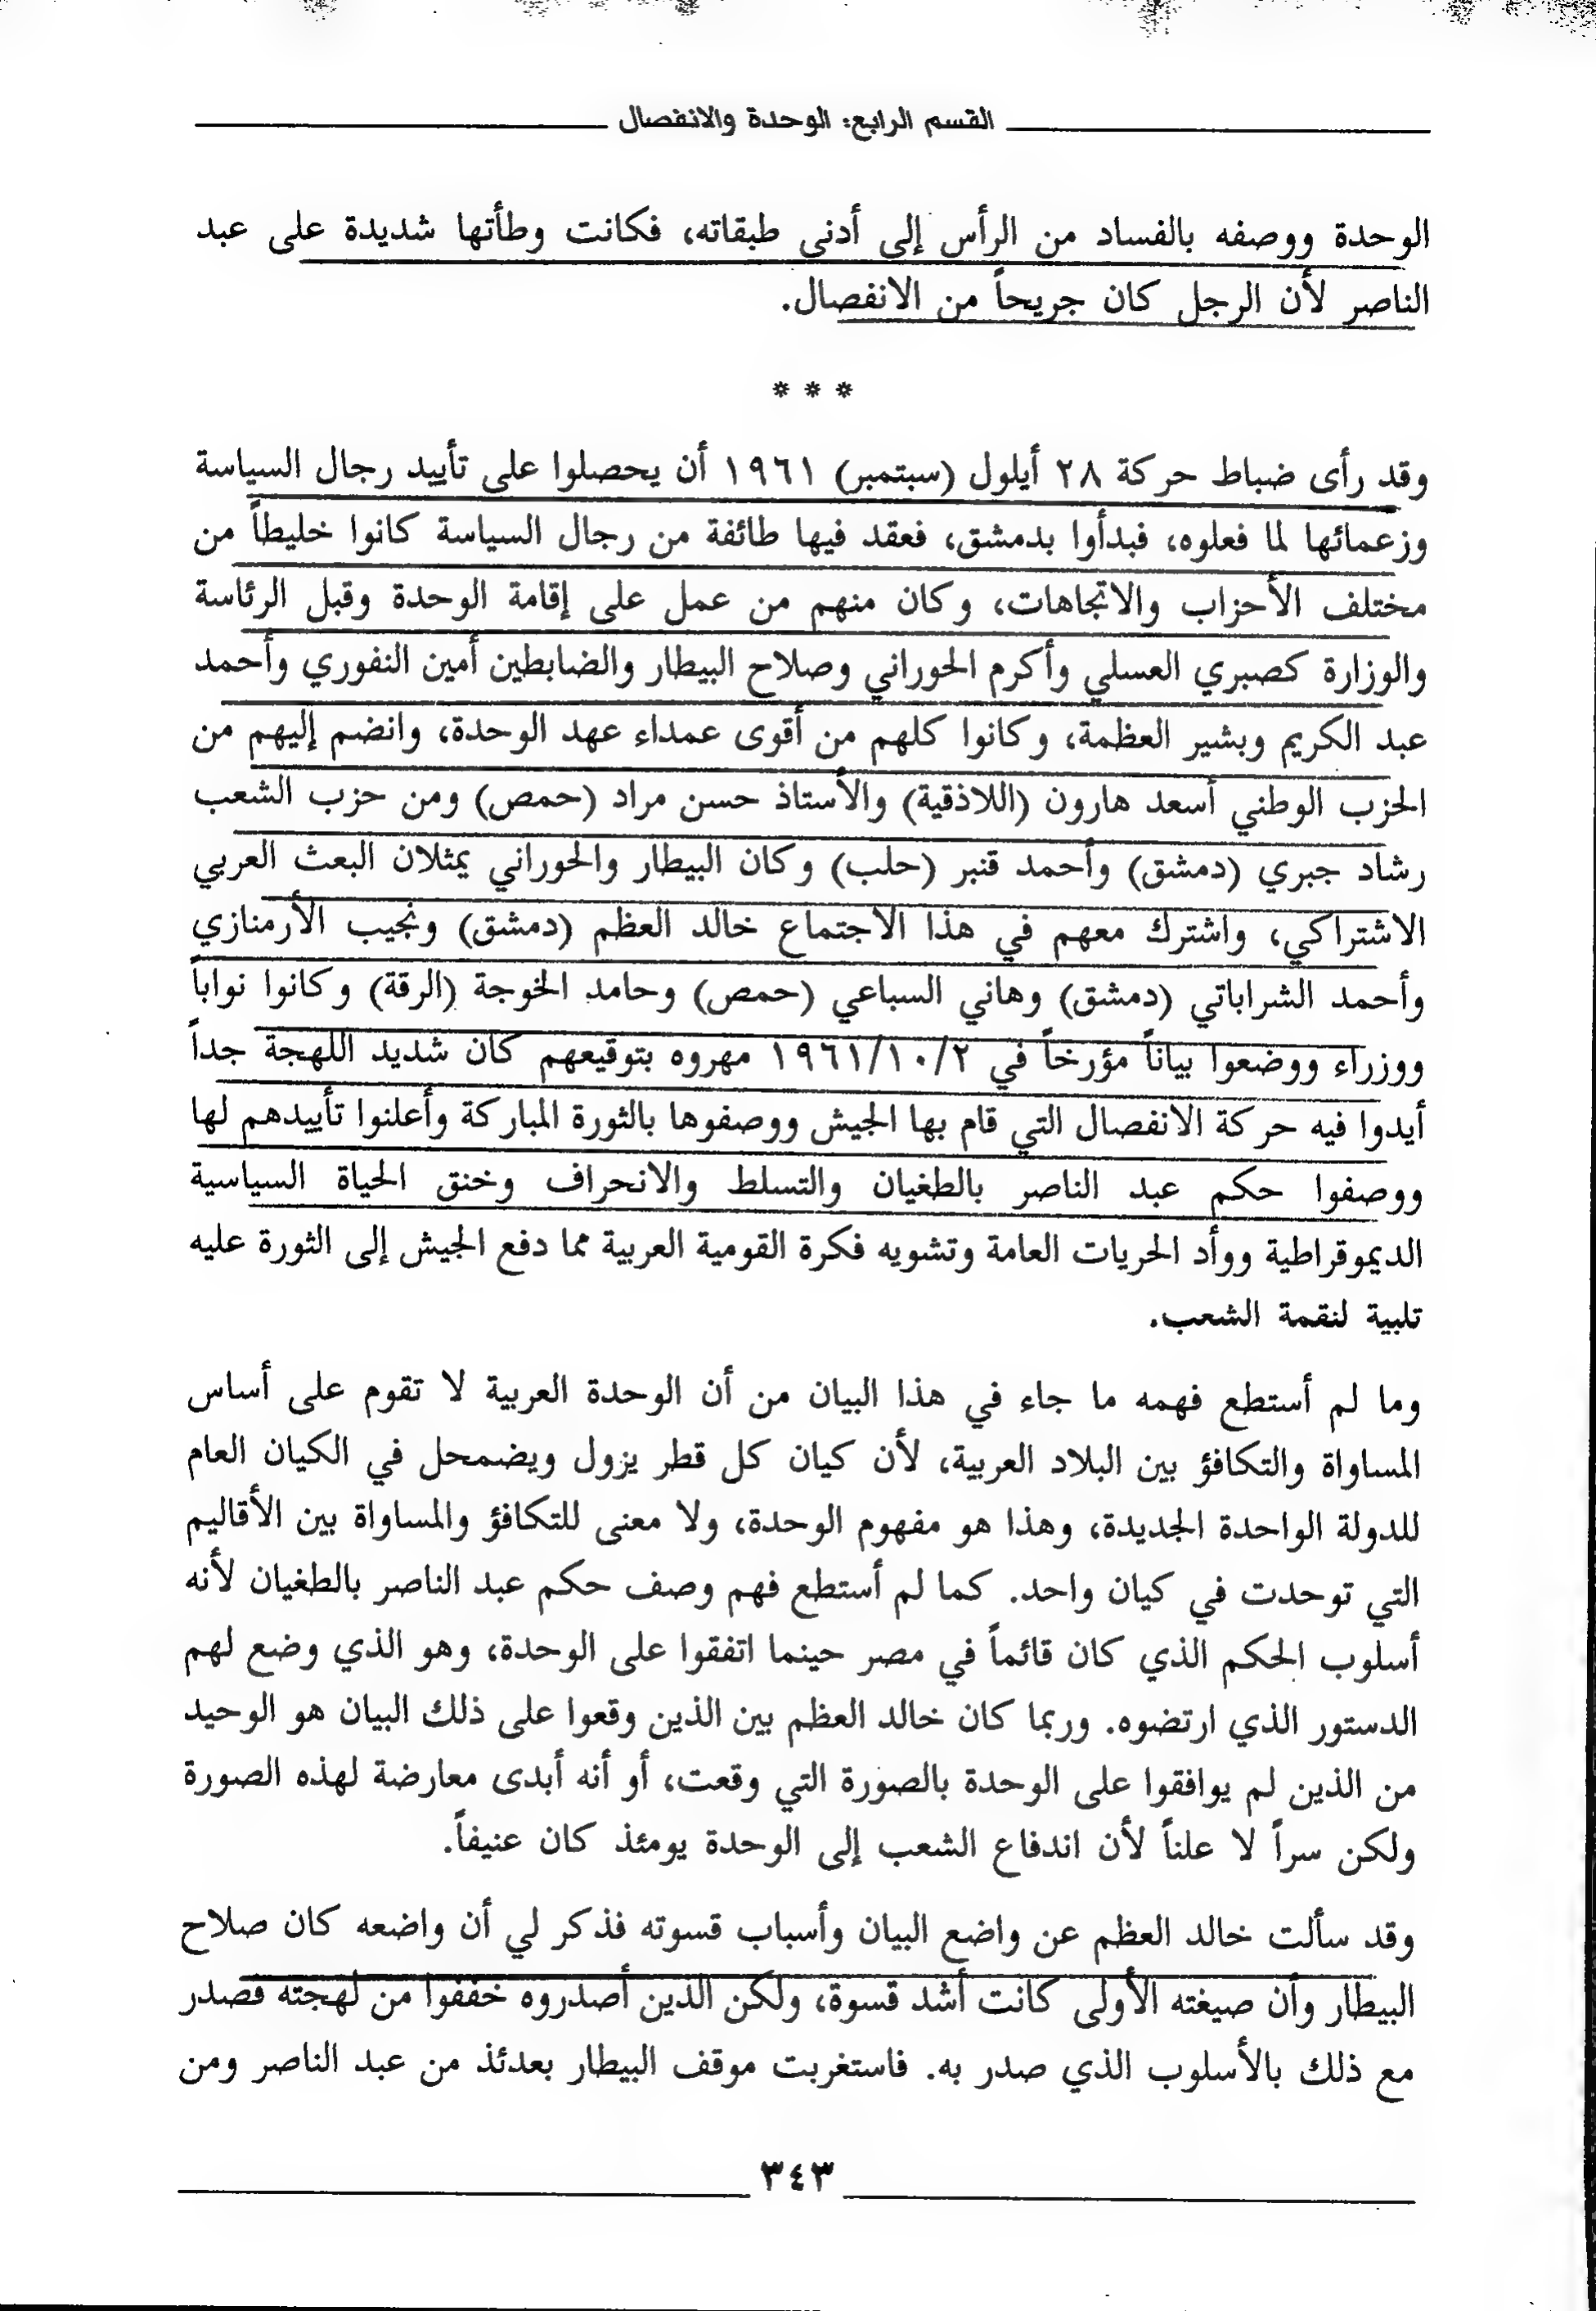 القسم الرابع: الوحدة والانفصال
الوحدة ووصفه بالفساد من الرأس إلى أدنى طبقاته، فكانت وطأتها شديدة على عبد
الناصر لأن الرجل كان جريحاً من الانفصال.
* * *
وقد رأى ضباط حركة ٢٨ أيلول (سبتمبر) ١٩٦١ أن يحصلوا على تأييد رجال السياسة
وزعمائها لما فعلوه، فبدأوا بدمشق، فعقد فيها طائفة من رجال السياسة كانوا خليطاً من
مختلف الأحزاب والاتجاهات، وكان منهم من عمل على إقامة الوحدة وقبل الرئاسة
والوزارة كصبري العسلي وأكرم الحوراني وصلاح البيطار والضابطين أمين النفوري وأحمد
عبد الكريم وبشير العظمة، وكانوا كلهم من أقوى عمداء عهد الوحدة، وانضم إليهم من
الحزب الوطني أسعد هارون (اللاذقية) والأستاذ حسن مراد (حمص) ومن حزب الشعب
رشاد جبري (دمشق) وأحمد قنبر (حلب) وكان البيطار والحوراني يمثلان البعث العربي
الاشتراكي، واشترك معهم في هذا الاجتماع خالد العظم (دمشق) ونجيب الأرمنازي
وأحمد الشراباتي (دمشق) وهاني السباعي (حمص) وحامد الخوجة (الرقة) وكانوا نواباً
ووزراء ووضعوا بياناً مؤرخاً في ١٩٦١/١٠/٢ مهروه بتوقيعهم كان شديد اللهجة جداً
أيدوا فيه حركة الانفصال التي قام بها الجيش ووصفوها بالثورة المباركة وأعلنوا تأييدهم لها
ووصفوا حكم عبد الناصر بالطغيان والتسلط والانحراف وخنق الحياة السياسية
الديموقراطية ووأد الحريات العامة وتشويه فكرة القومية العربية مما دفع الجيش إلى الثورة عليه
تلبية لنقمة الشعب.
وما لم أستطع فهمه ما جاء في هذا البيان من أن الوحدة العربية لا تقوم على أساس
المساواة والتكافؤ بين البلاد العربية، لأن كيان كل قطر يزول ويضمحل في الكيان العام
للدولة الواحدة الجديدة، وهذا هو مفهوم الوحدة، ولا معنى للتكافؤ والمساواة بين الأقاليم
التي توحدت في كيان واحد. كما لم أستطع فهم وصف حكم عبد الناصر بالطغيان لأنه
أسلوب الحكم الذي كان قائماً في مصر حينما اتفقوا على الوحدة، وهو الذي وضع لهم
الدستور الذي ارتضوه. وربما كان خالد العظم بين الذين وقعوا على ذلك البيان هو الوحيد
من الذين لم يوافقوا على الوحدة بالصورة التي وقعت، أو أنه أبدى معارضة لهذه الصورة
ولكن سراً لا علناً لأن اندفاع الشعب إلى الوحدة يومئذ كان عنيفاً.
وقد سألت خالد العظم عن واضع البيان وأسباب قسوته فذكر لي أن واضعه كان صلاح
البيطار وأن صيغته الأولى كانت أشد قسوة، ولكن الذين أصدروه خففوا من لهجته فصدر
مع ذلك بالأسلوب الذي صدر به. فاستغربت موقف البيطار بعدئذ من عبد الناصر ومن
٣٤٣